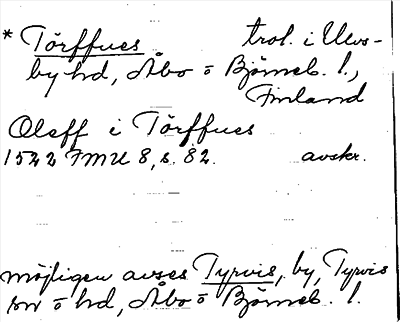 * Törffues trol. i Ulvs-
by hd, Åbo o Björneb. l.,
Finland
Oleff i Törffues
1522 FMU 8, s. 82. avskr.
möjligen avses Tyrvis, by, Tyrvis
sn o hd, Åbo o Björneb. l.